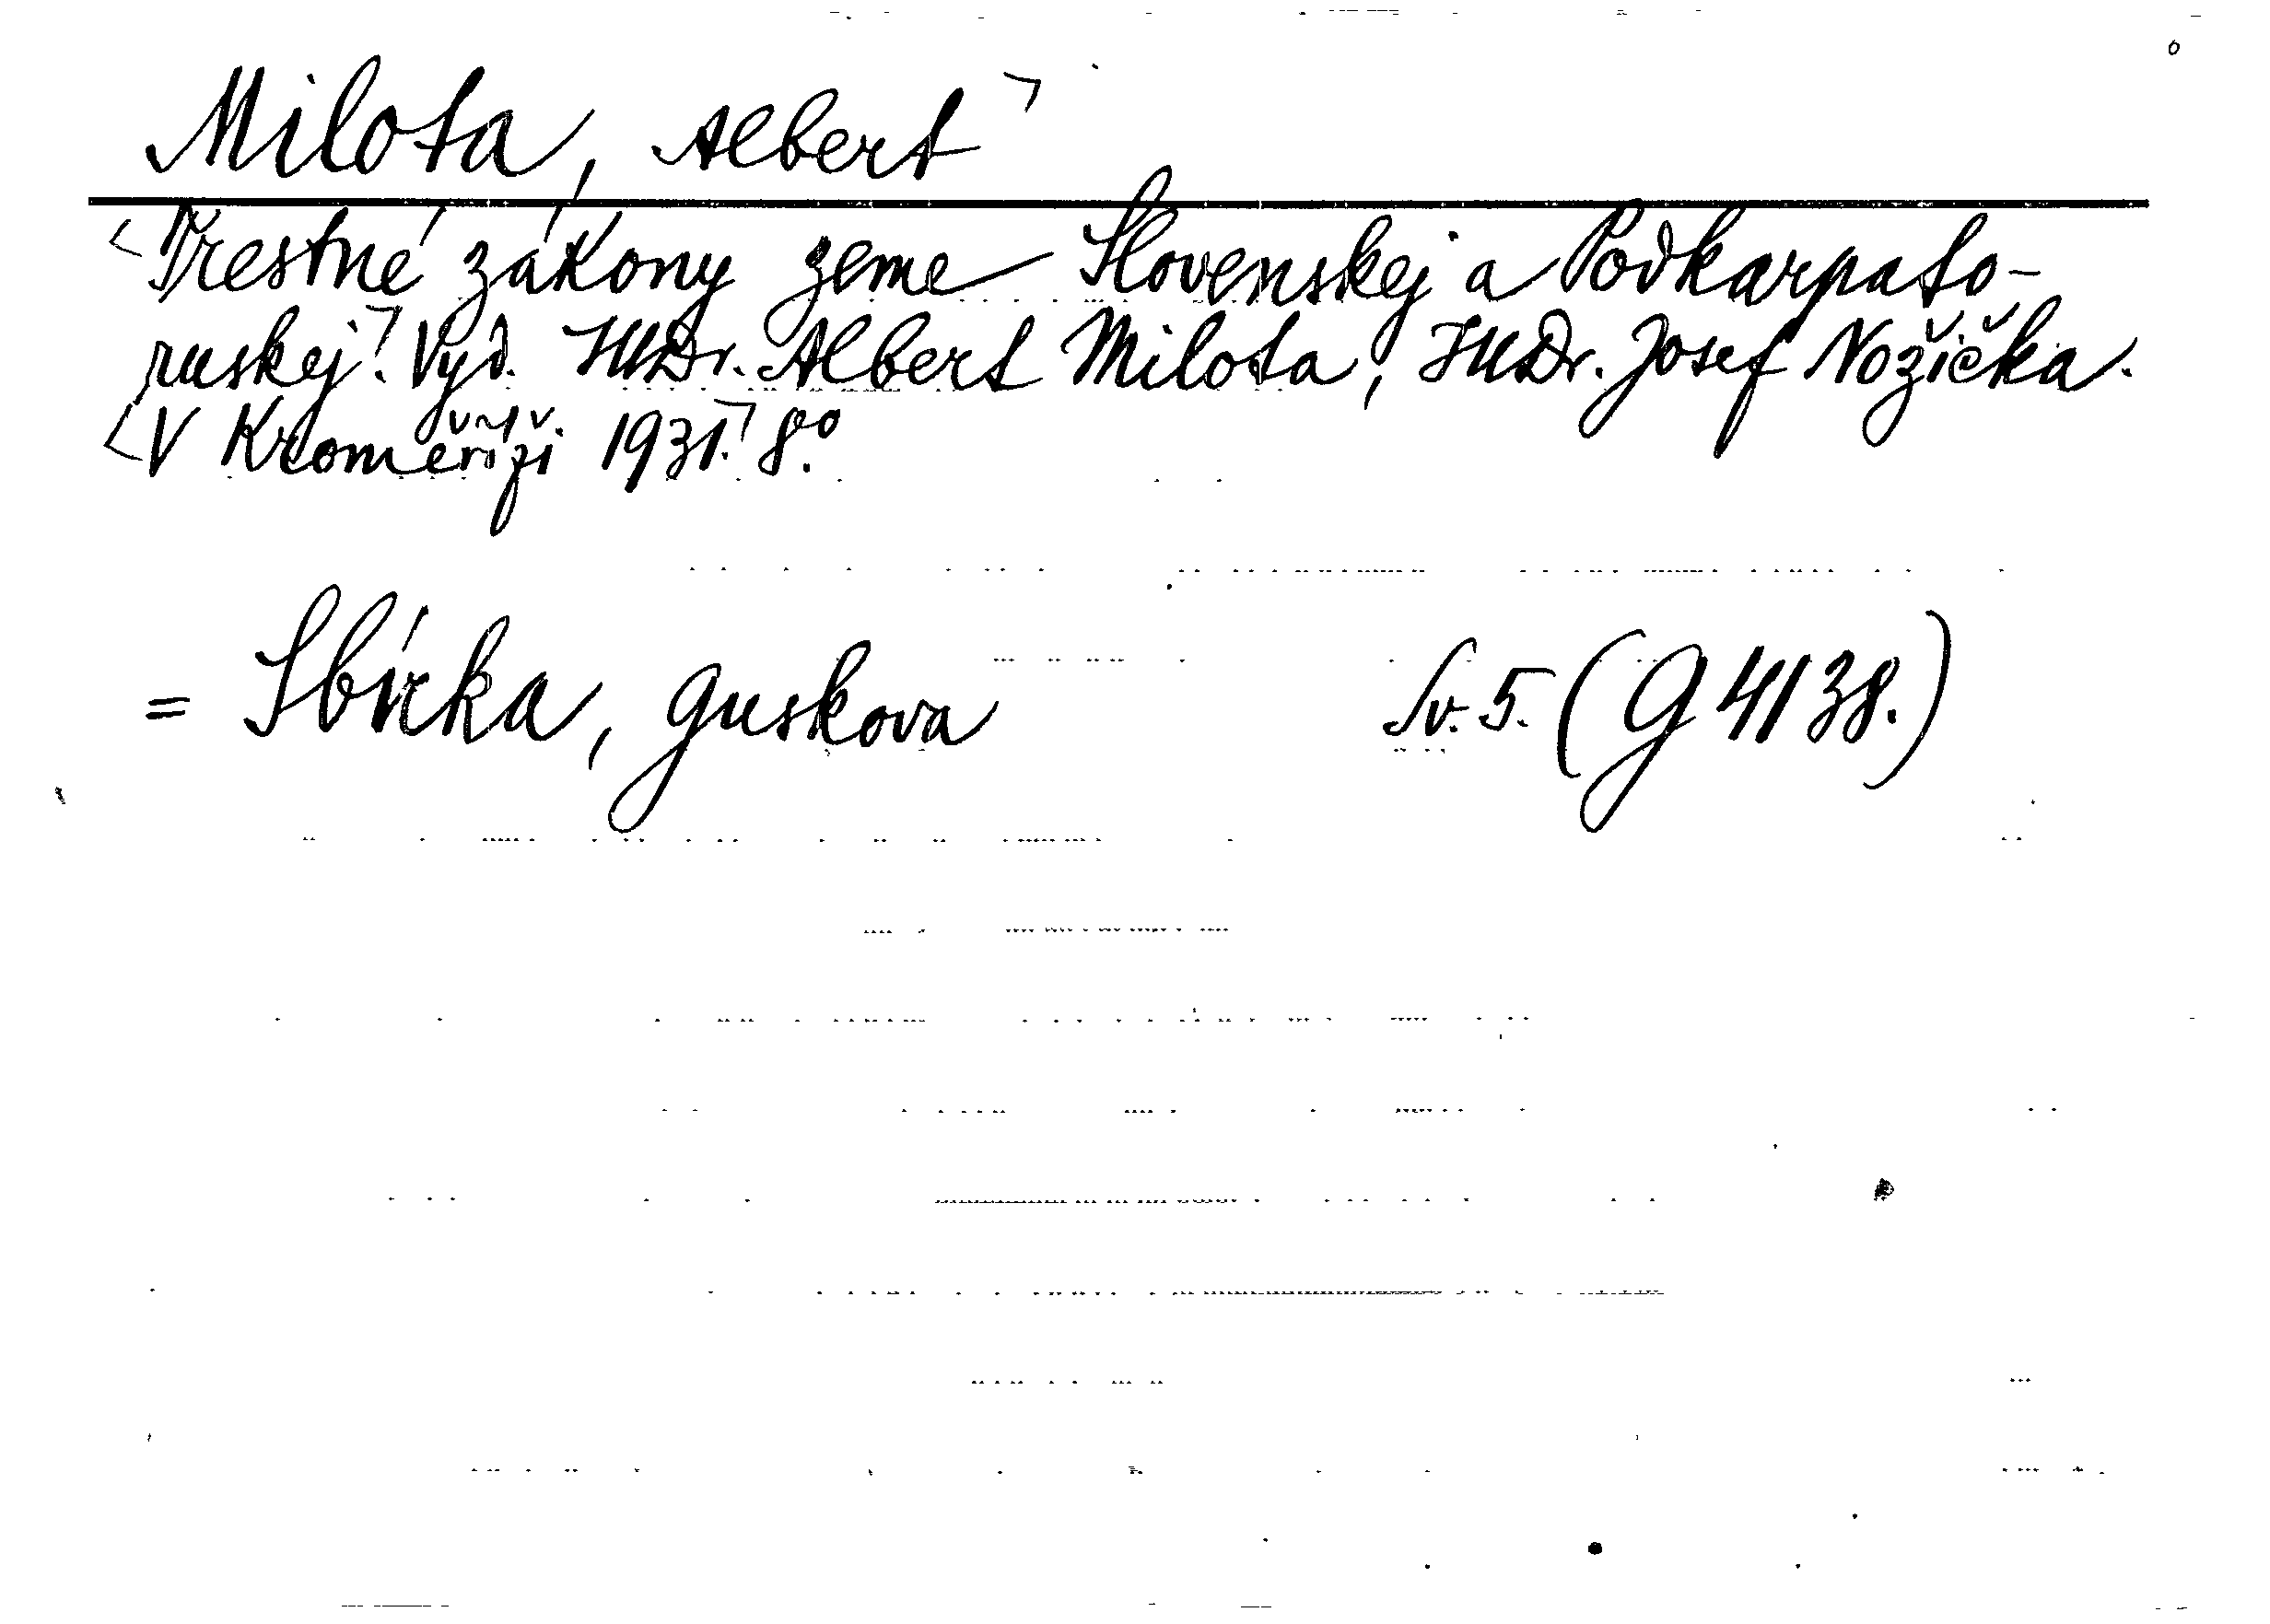 Milota, Albert
Trestné zákony zeme Slovenskej a Podkarpato-
ruskej. Vyd. JUDr. Albert Milota, JUDr. Josef Nožička.
V Kroměříži 1931. 8°.
= Sbírka, Guskova Sv. 5. (G 4138.)